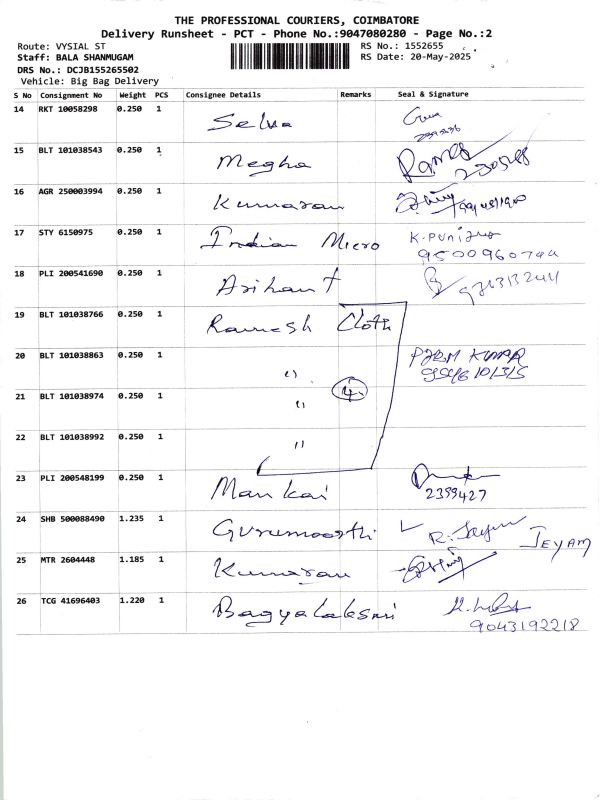 THE PROFESSIONAL COURIERS, COIMBATORE
Delivery Runsheet - PCT - Phone No.:9047080280 - Page No.:2
Route: VYSIAL ST RS No.: 1552655
Staff: BALA SHANMUGAM RS Date: 20-May-2025
DRS No.: DCJB155265502
Vehicle: Big Bag Delivery
S No Consignment No Weight PCS Consignee Details Remarks Seal & Signature
14 RKT 10058298 0.250 1 Selva
15 BLT 101038543 0.250 1 Megha
16 AGR 250003994 0.250 1 Kumaran
17 STY 6150975 0.250 1 Indian Micro
18 PLI 200541690 0.250 1 Arihant
19 BLT 101038766 0.250 1 Ramesh Cloth
20 BLT 101038863 0.250 1 "
21 BLT 101038974 0.250 1 " 4
22 BLT 101038992 0.250 1 "
23 PLI 200548199 0.250 1 Mankai 2399427
24 SHB 500088490 1.235 1 Gurumoorthi JEYAM
25 MTR 2604448 1.185 1 Kumaran
26 TCG 41696403 1.220 1 Bagyalaksmi
9043192218